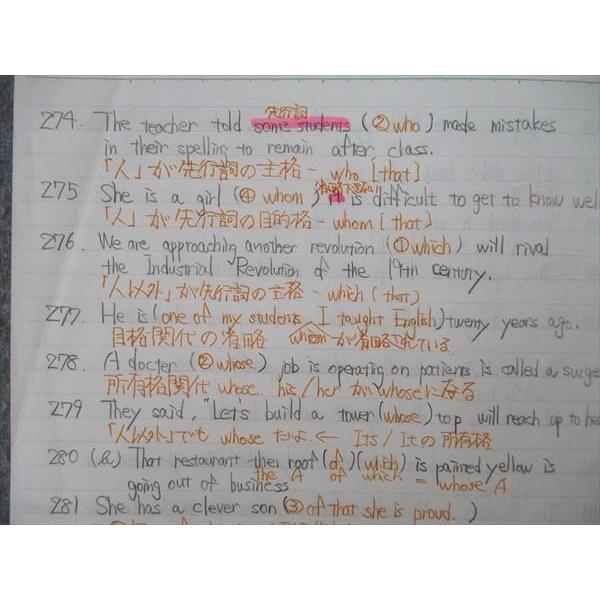 先行詞
274. The teacher told some students (② who) made mistakes
in their spelling to remain after class.
「人」が先行詞の主格 - who [that]
275 She is a girl (④ whom) it is difficult to get to know wel
「人」が先行詞の目的格 - whom [that]
276. We are approaching another revolution (① which) will rival
the Industrial Revolution of the 19th century.
「人以外」が先行詞の主格 - which (that)
277. He is (one of my students I taught English) twenty years ago.
目格関代の省略 whomが省略されている
278. A docter (② whose) job is operating on patients is called a surge
所有格関代 whose. his/her がwhoseになる
279 They said, "Let's build a tower (whose) top will reach up to he
「人以外」でも whose だよ ← Its/Itの所有格
280 (a) That restaurant the roof (of) (which) is painted yellow is
the A of which = whose A
going out of business
281 She has a clever son (③ of that she is proud. )